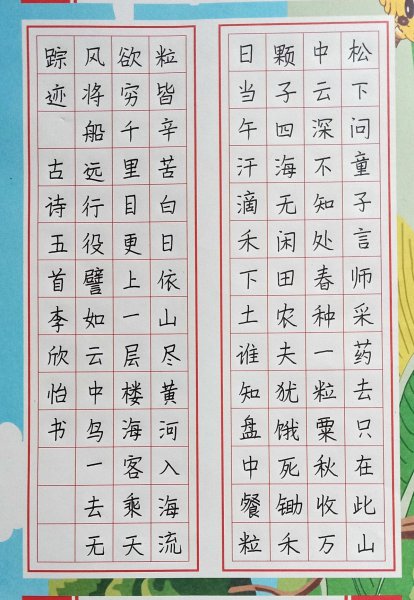 松下问童子言师采药去只在此山
中云深不知处春种一粒粟秋收万
颗子四海无闲田农夫犹饿死锄禾
日当午汗滴禾下土谁知盘中餐粒
粒皆辛苦白日依山尽黄河入海流
欲穷千里目更上一层楼海客乘天
风将船远行役譬如云中鸟一去无
踪迹 古诗五首李欣怡书